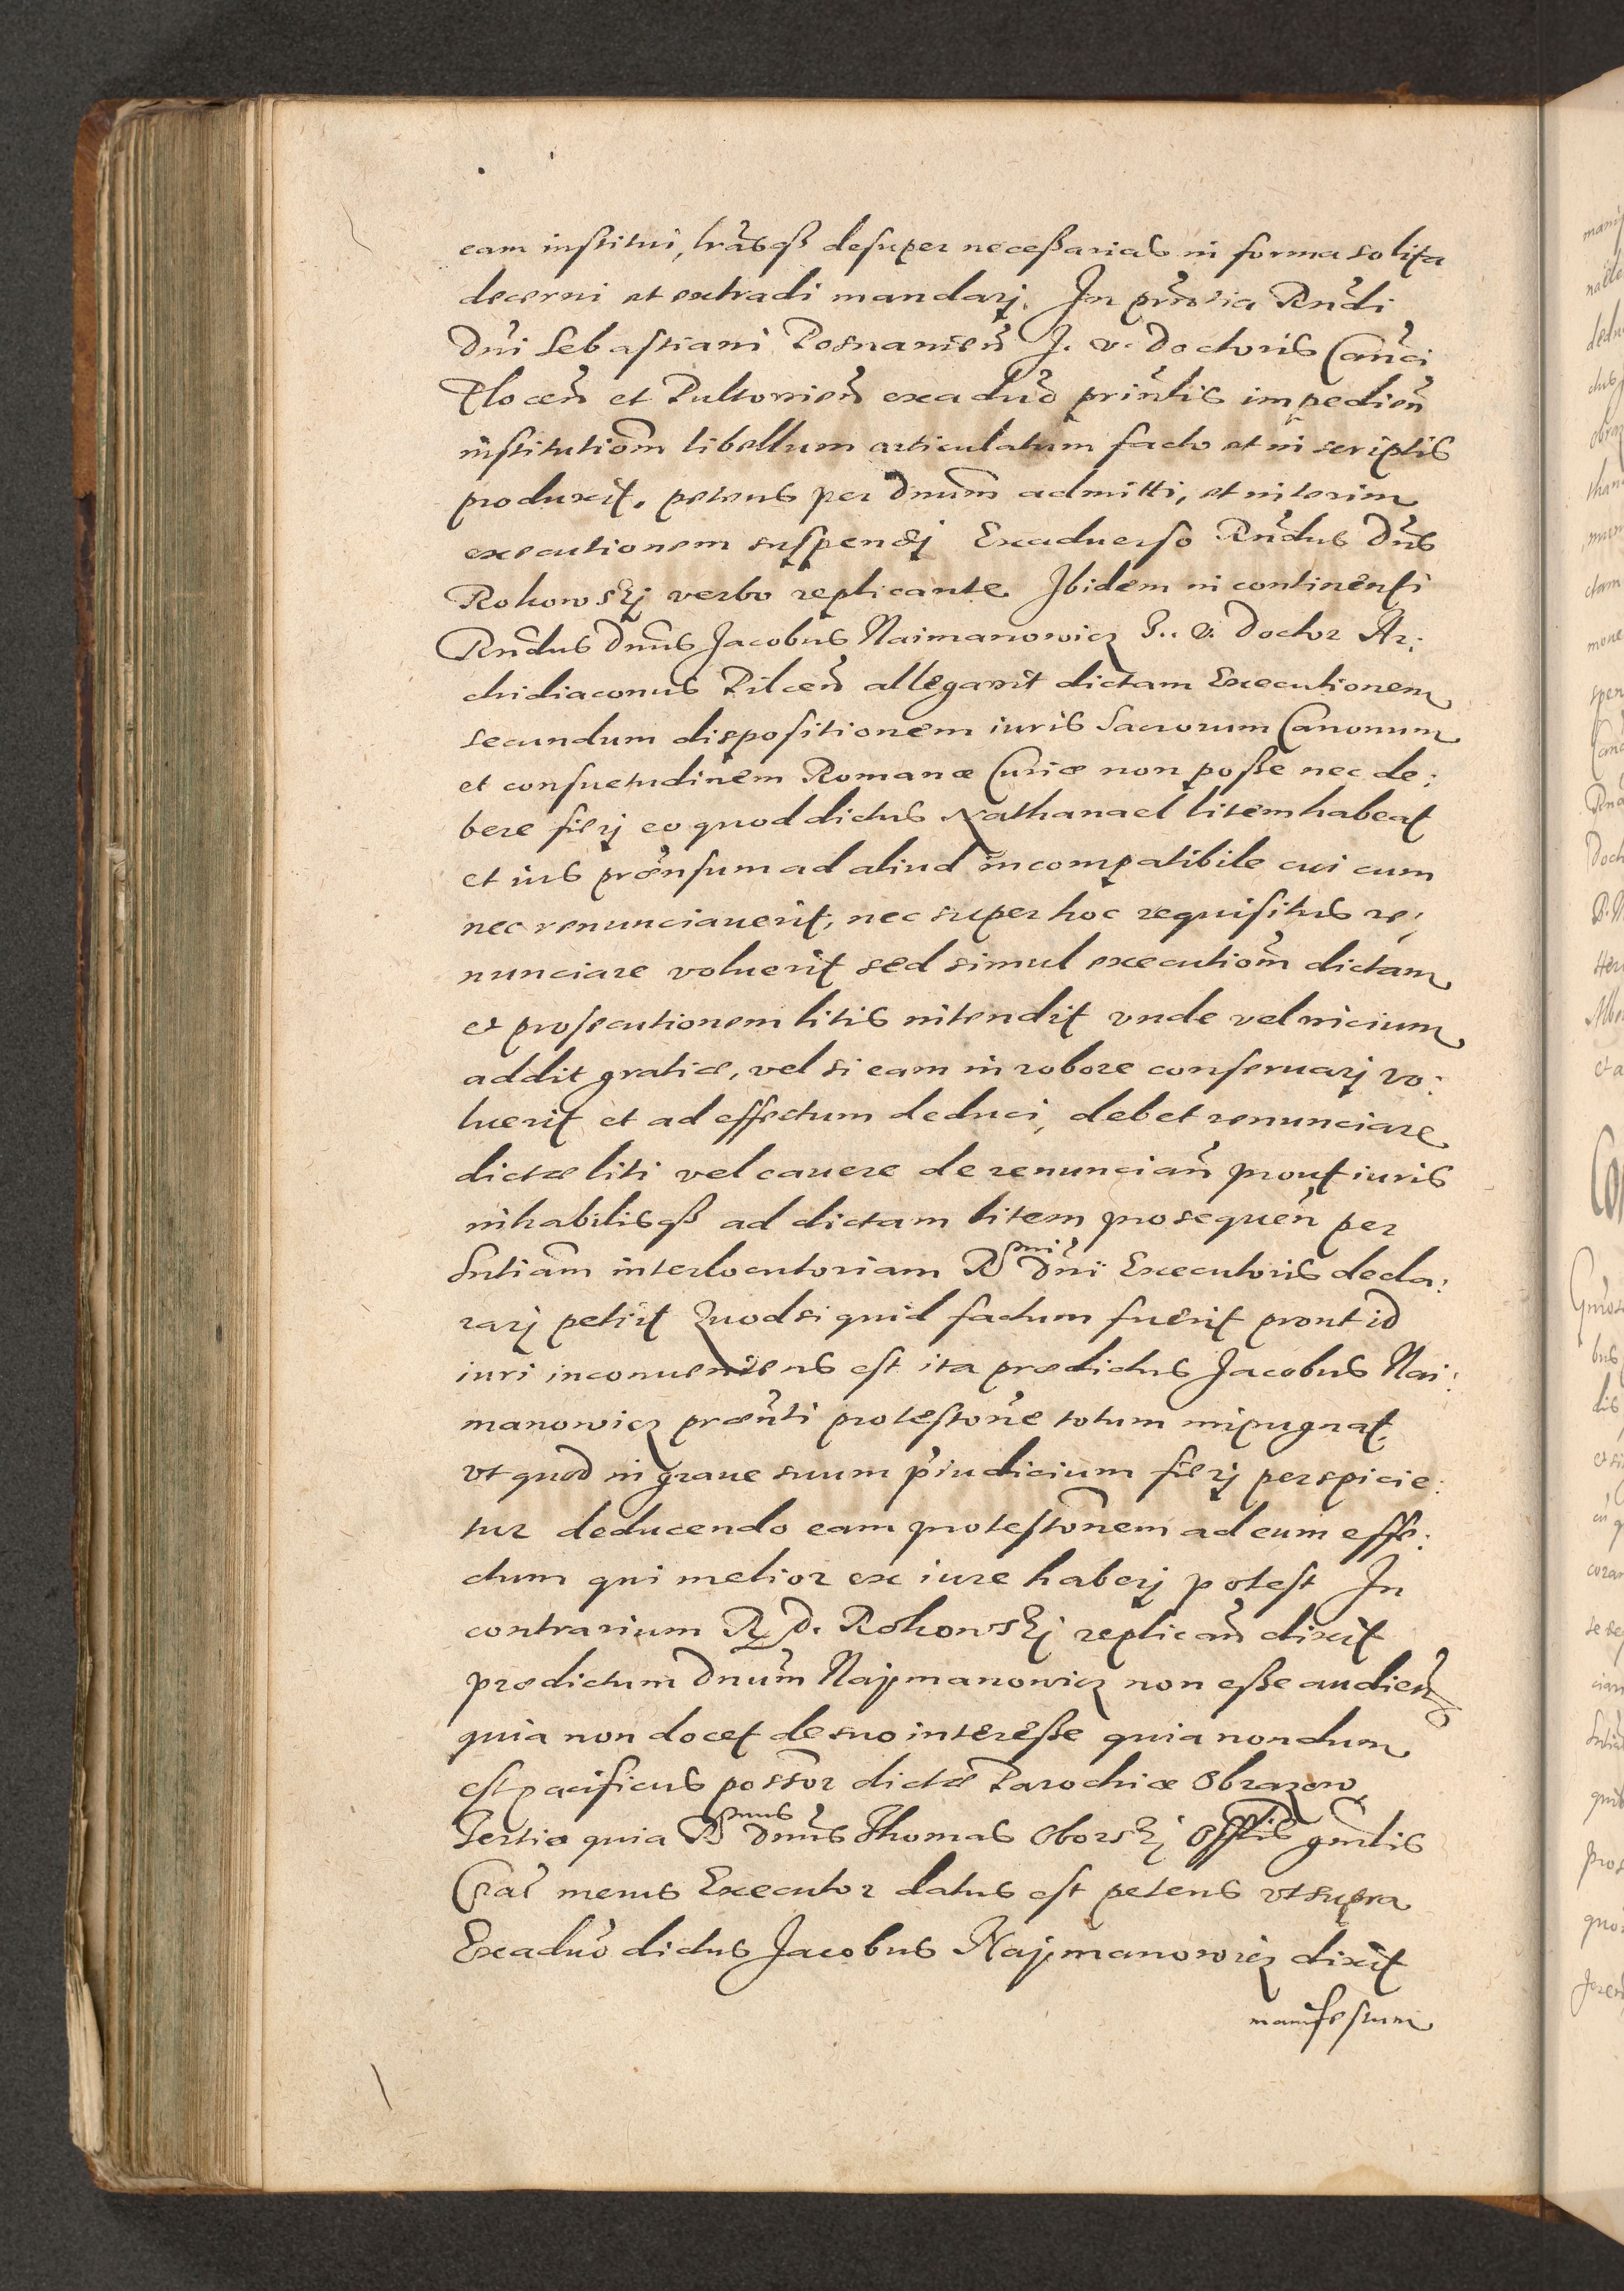 eam institui, lrãsqß desuper neceßarias in forma solita
decerni et extradi mandarj. In pñtia Rndi
Dni Sebastiani Posnanien J. v. Doctoris Canci
Plocen et Pultovien exaduo prinlis impedien
institutiom libellum articulatum facto et in scriptis
produxit, petens per Dnum admitti, et interim
executionem suspendj Exaduerso Rndus Dns
Rokowskj verbo replicante. Ibidem in continenti
Rndus Dnus Jacobus Naimanowicz J. v. Doctor Ar:
chidiaconus Pilcen allegavit dictam Executionem
secundum dispositionem iuris Sacrorum Canonum
et consuetudinem Romanæ Curiæ non poße nec de:
bere fierj eo quod dictus Nathanael litem habeat
et ius præensum ad aliud incompatibile cui cum
nec renunciauerit, nec super hoc requisitus re:
nunciare voluerit sed simul executiom dictam
et prosecutionem litis intendit vnde vel vicium
addit gratiæ, vel si eam in robore conseruarj vo:
luerit et ad effectum deduci, debet renunciare
dictæ liti vel cauere de renuncian prout iuris
inhabilisqß ad dictam litem prosequen per
Sntiam interlocutoriam Rmi Dni Executoris decla:
rarj petiit Quod si quid factum fuerit prout id
iuri inconueniens est ita prædictus Jacobus Nai:
manowicz præñti protestone totum impugnat,
vt quod in graue suum piudicium fierj perspicie:
tur deducendo eam protestonem ad eum effe:
ctum qui melior ex iure haberj potest In
contrarium R D. Rokowskj replican dixit
prædictum Dnum Najmanowicz non eße audien
quia non docet de suo intereße quia nondum
est pacificus possor dictæ Parochiæ Obrazow
Tertio quia Rmus Dnus Thomas Oborskj Offlis gnrlis
Crac merus Executor datus est petens vt supra
Exaduo dictus Jacobus Najmanowicz dixit
manifestum